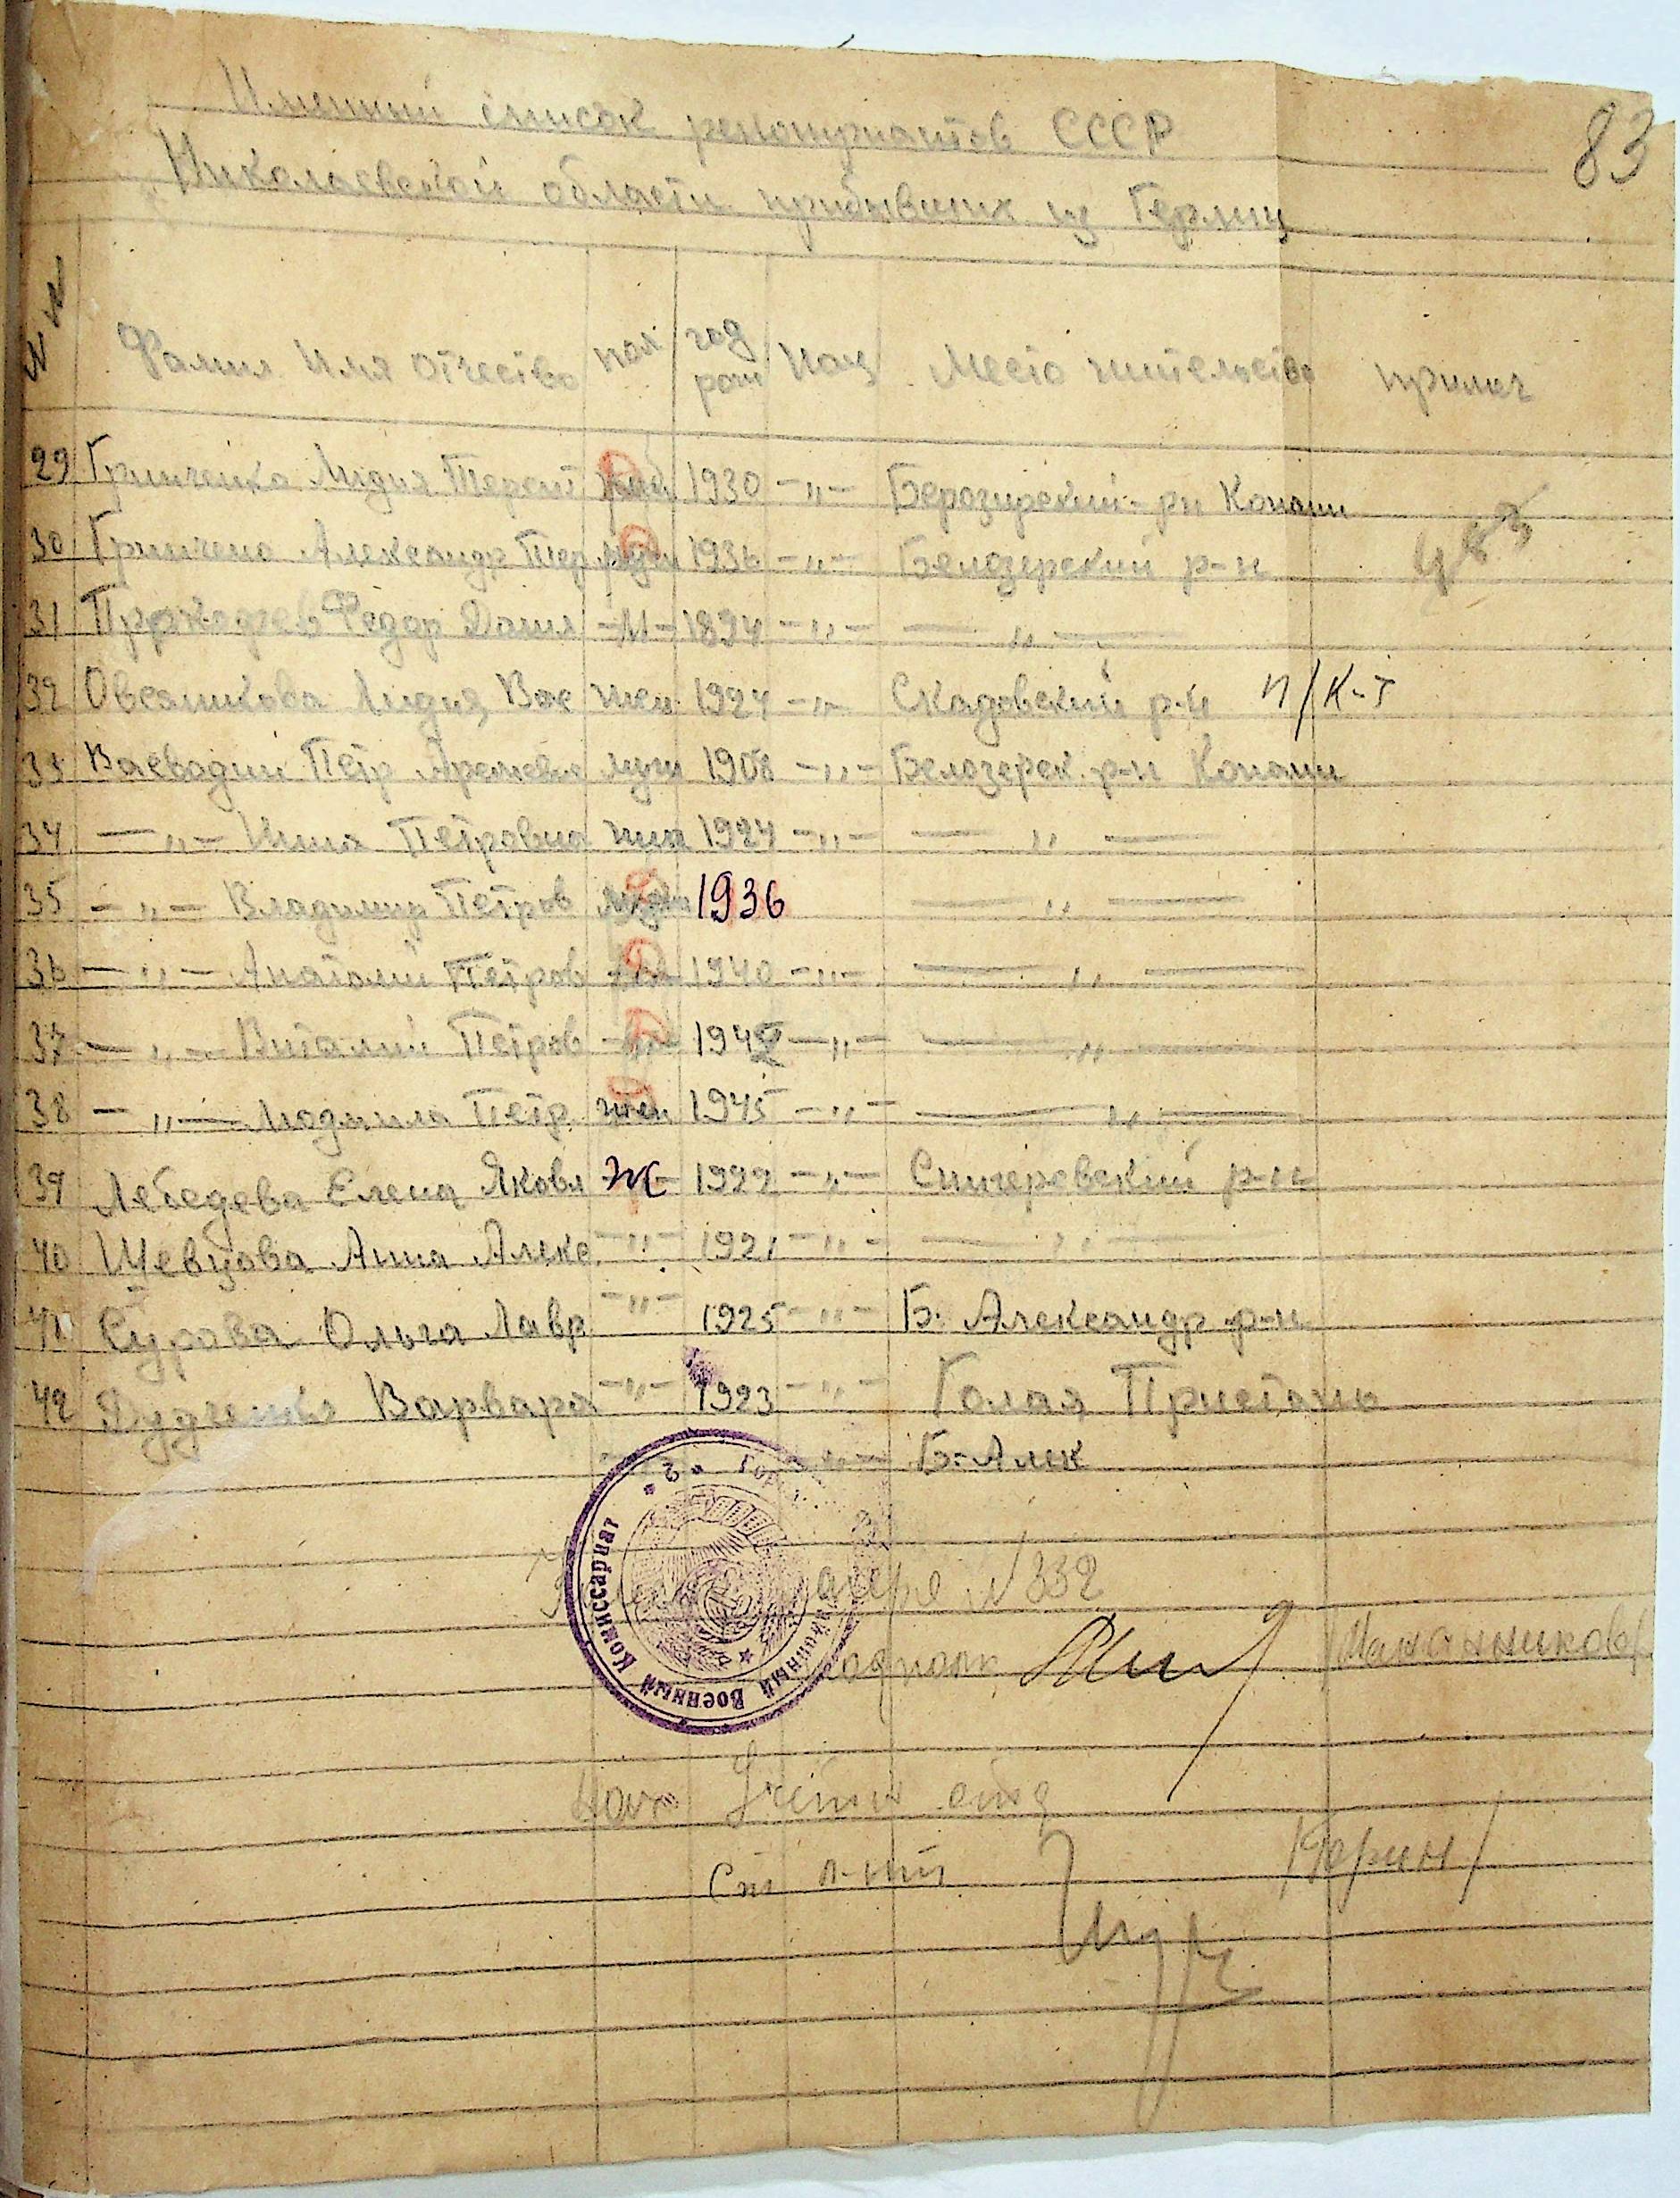 83
Именный список репотриатов СССР
Николаевской области прибывших из Германии
NN Фамил Имя Отчество пол год рож Нац Место жительства примеч
29 Гринченко Лидия Терент 1930 -"- Берозирский р-н Копани
30 Гринчено Александр Тер муж 1936 -"- Белозерский р-н
31 Федор Данил -"- 1894 -"- -"-
32 Овсяникова Лидия Вас жен 1924 -"- Скадовский р-н п/к-т
33 Ваеводин Петр Артемов муж 1908 -"- Белозерск. р-н Копани
34 -"- Нина Петровна жен 1924 -"- -"-
35 -"- Владимир Петров муж 1936 -"-
36 -"- Анатолий Петров -"- 1940 -"- -"-
37 -"- Виталий Петров -"- 1942 -"- -"-
38 -"- Людмила Петр. жен 1945 -"- -"-
39 Лебедева Елена Яковл Ж 1922 -"- Снигеровский р-н
40 Шевцова Анна Алекс -"- 1921 -"- -"-
41 Сурова Ольга Лавр -"- 1925 -"- Б. Александр р-н
42 Дудченко Варвара -"- 1923 -"- Голая Пристань
-"- Б-Алек
лагеря N 332
подполк /Мананников/
Нач Учетн отд
Ст л-нт
Районный Военный Комиссариат